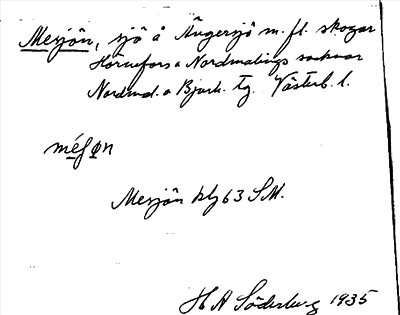 Mesjön, sjö å Ängersjö m. fl. skogar
Hörnefors o Nordmalings socknar
Nordmal. o Bjurh. tg. Västerb. l.
méʃøn
Mesjön blg 63 SM.
H A Söderberg 1935